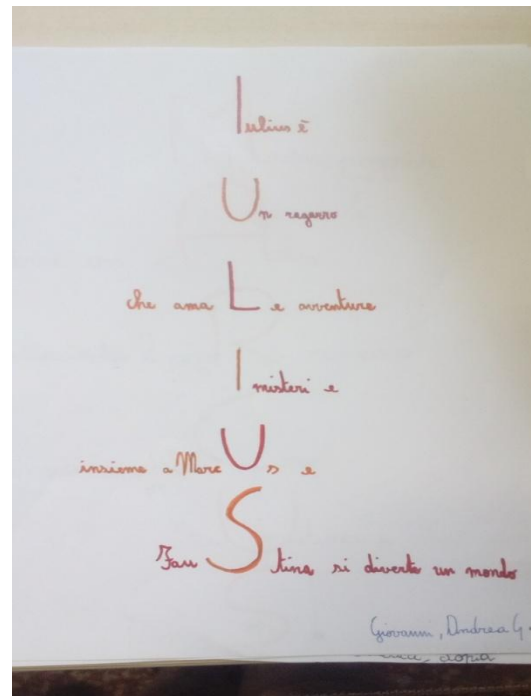 Iulius è
Un ragazzo
che ama Le avventure
I misteri e
insieme a MarcUs e
FauStina si diverte un mondo
Giovanni, Andrea G.
copia